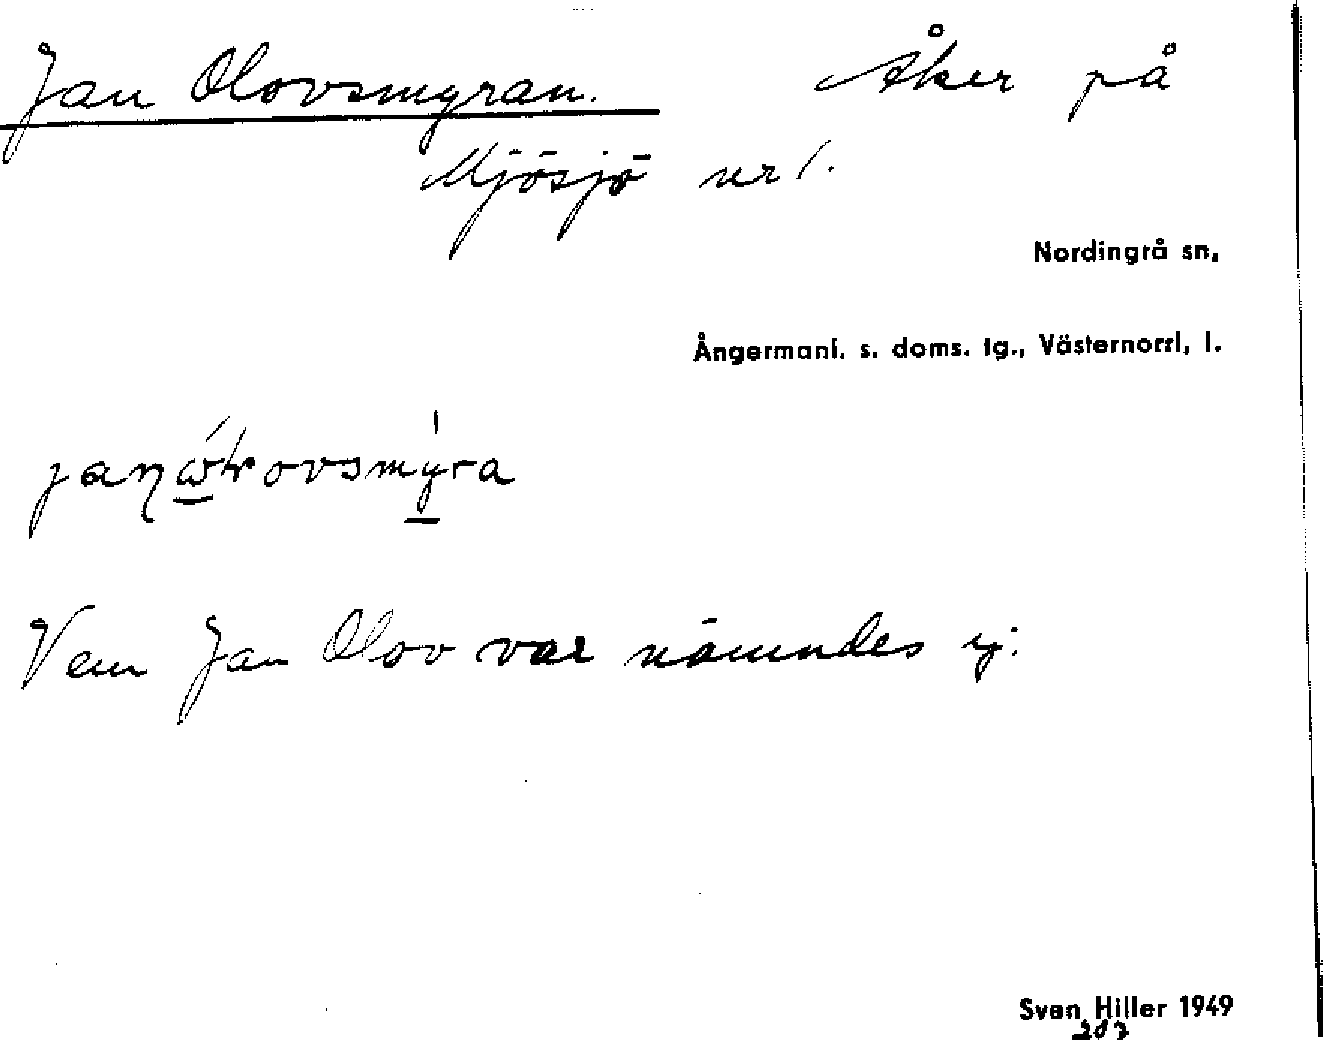 Jan Olovsmyran. Åker på
Mjösjö nr 1.
Nordingrå sn,
Ångermanl. s. doms. tg., Västernorrl, l.
Vem Jan Olov var nämndes ej.
Sven Hiller 1949